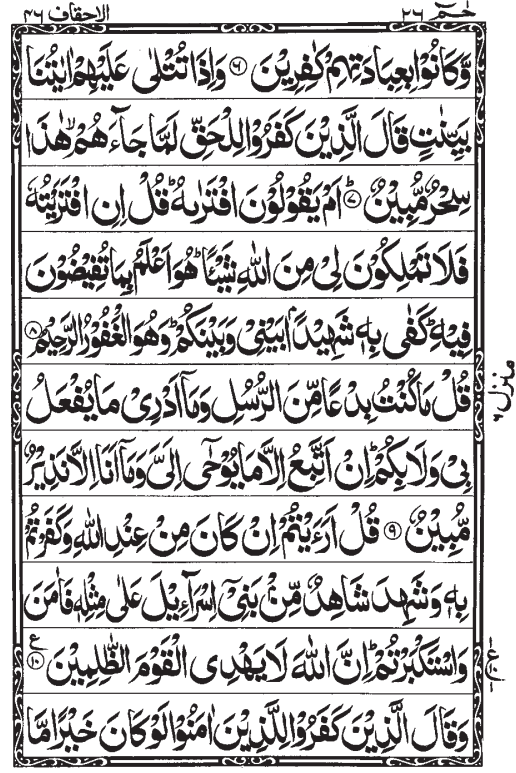 حٰمٓ ٢٦
الاحقاف ٤٦
وَّكَانُوْا بِعِبَادَتِهِمْ كٰفِرِيْنَ ﴿٦﴾ وَاِذَا تُتْلٰى عَلَيْهِمْ اٰيٰتُنَا
بَيِّنٰتٍ قَالَ الَّذِيْنَ كَفَرُوْا لِلْحَقِّ لَمَّا جَآءَهُمْ ۙ هٰذَا
سِحْرٌ مُّبِيْنٌ ؕ﴿٧﴾ اَمْ يَقُوْلُوْنَ افْتَرٰىهُ ؕ قُلْ اِنِ افْتَرَيْتُهٗ
فَلَا تَمْلِكُوْنَ لِىْ مِنَ اللّٰهِ شَيْـًٔا ؕ هُوَ اَعْلَمُ بِمَا تُفِيْضُوْنَ
فِيْهِ ؕ كَفٰى بِهٖ شَهِيْدًۢا بَيْنِىْ وَبَيْنَكُمْ ؕ وَهُوَ الْغَفُوْرُ الرَّحِيْمُ ﴿٨﴾
قُلْ مَا كُنْتُ بِدْعًا مِّنَ الرُّسُلِ وَمَاۤ اَدْرِىْ مَا يُفْعَلُ
بِىْ وَلَا بِكُمْ ؕ اِنْ اَتَّبِعُ اِلَّا مَا يُوْحٰٓى اِلَىَّ وَمَاۤ اَنَا اِلَّا نَذِيْرٌ
مُّبِيْنٌ ﴿٩﴾ قُلْ اَرَءَيْتُمْ اِنْ كَانَ مِنْ عِنْدِ اللّٰهِ وَكَفَرْتُمْ
بِهٖ وَشَهِدَ شَاهِدٌ مِّنْۢ بَنِىْۤ اِسْرَآءِيْلَ عَلٰى مِثْلِهٖ فَاٰمَنَ
وَاسْتَكْبَرْتُمْ ؕ اِنَّ اللّٰهَ لَا يَهْدِى الْقَوْمَ الظّٰلِمِيْنَ ﴿١٠﴾ ع
وَقَالَ الَّذِيْنَ كَفَرُوْا لِلَّذِيْنَ اٰمَنُوْا لَوْ كَانَ خَيْرًا مَّا
منزل ٦